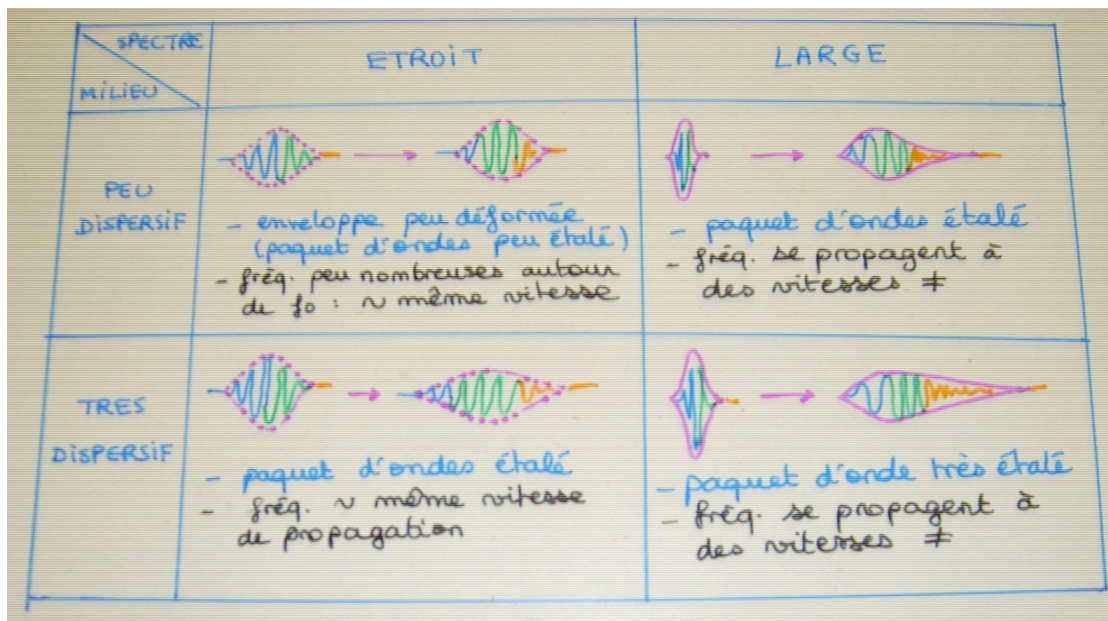 SPECTRE
MILIEU
ETROIT
LARGE
PEU
DISPERSIF
- enveloppe peu déformée
(paquet d'ondes peu étalé)
- fréq. peu nombreuses autour
de fo : ~ même vitesse
- paquet d'ondes étalé
- fréq. se propagent à
des vitesses ≠
TRES
DISPERSIF
- paquet d'ondes étalé
- fréq. ~ même vitesse
de propagation
- paquet d'onde très étalé
- fréq. se propagent à
des vitesses ≠